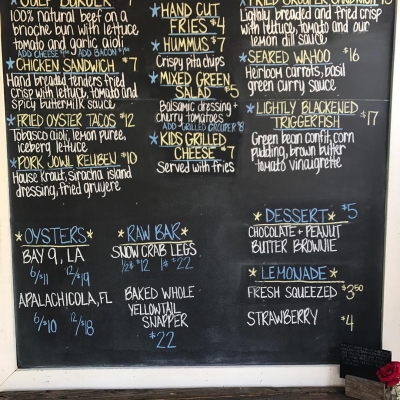 BURGER $7
100% natural beef on a
brioche bun with lettuce
tomato and garlic aioli
ADD CHEESE ADD BACON
CHICKEN SANDWICH $7
Hand breaded tenders fried
crisp with lettuce, tomato and
spicy buttermilk sauce
FRIED OYSTER TACOS $12
Tobasco aioli, lemon puree,
iceberg lettuce
PORK JOWL REUBEN $10
House krout, siracha island
dressing, fried gruyere
HAND CUT
FRIES $4
HUMMUS $7
Crispy pita chips
MIXED GREEN
SALAD $5
Balsamic dressing +
cherry tomatoes
ADD GRILLED GROUPER $8
KIDS GRILLED
CHEESE $7
Served with fries
FRIED GROUPER SANDWICH
Lightly breaded and fried crisp
with lettuce, tomato and our
lemon dill sauce
SEARED WAHOO $16
Heirloom carrots, basil
green curry sauce
LIGHTLY BLACKENED
TRIGGERFISH $17
Green bean confit, corn
pudding, brown butter
tomato vinaigrette
OYSTERS
BAY 9, LA
6/$11 12/$19
APALACHICOLA, FL
6/$10 12/$18
RAW BAR
SNOW CRAB LEGS
1/2# $12 1# $22
BAKED WHOLE
YELLOWTAIL
SNAPPER
$22
DESSERT $5
CHOCOLATE + PEANUT
BUTTER BROWNIE
LEMONADE
FRESH SQUEEZED $3.50
STRAWBERRY $4